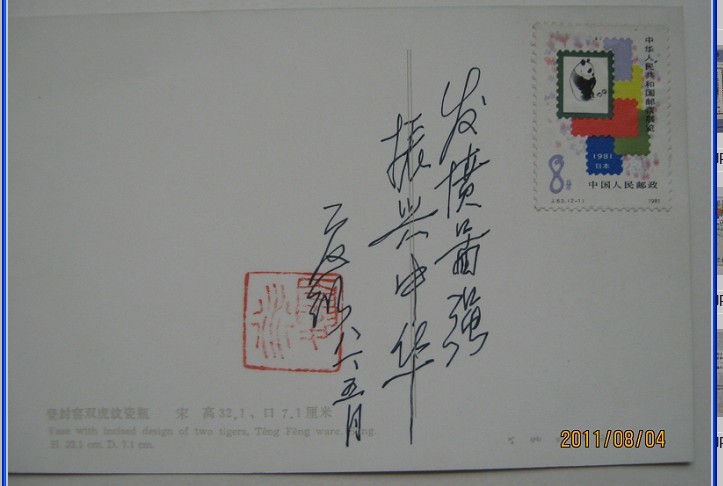 中华人民共和国邮票展览
1981
日本
8分
中国人民邮政
J.63.(2-1) 1981
发愤图强
振兴中华
八六五月
登封窑双虎纹瓷瓶 宋 高32.1、口7.1厘米
Vase with incised design of two tigers. Têng Fêng ware.
H. 32.1 cm. D. 7.1 cm.
2011/08/04